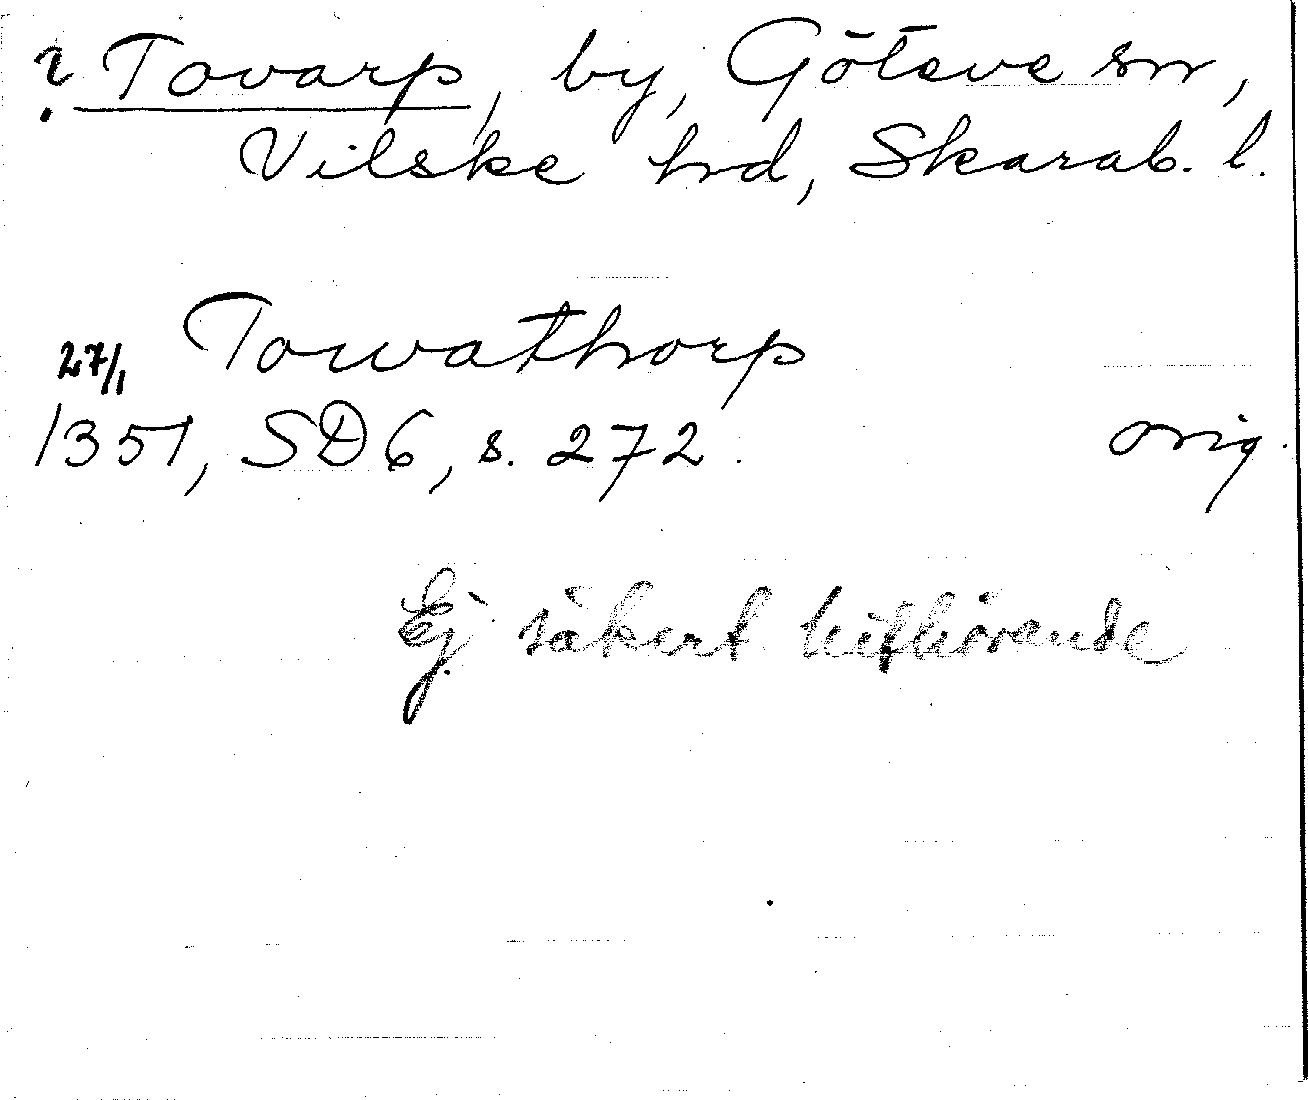 ? Tovarp, by, Göteve sn,
Vilske hd, Skarab. l.
Towathorp
27/1 1351, SD 6, s. 272. orig.
Ej säkert hithörande